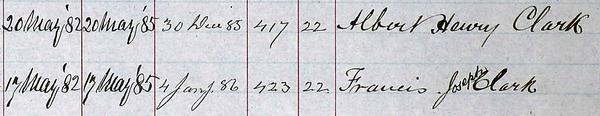 20 May '82 20 May '85 30 Dec 85 417 22 Albert Henry Clark
17 May '82 17 May '85 4 Jany. 86 423 22 Francis Joseph Clark